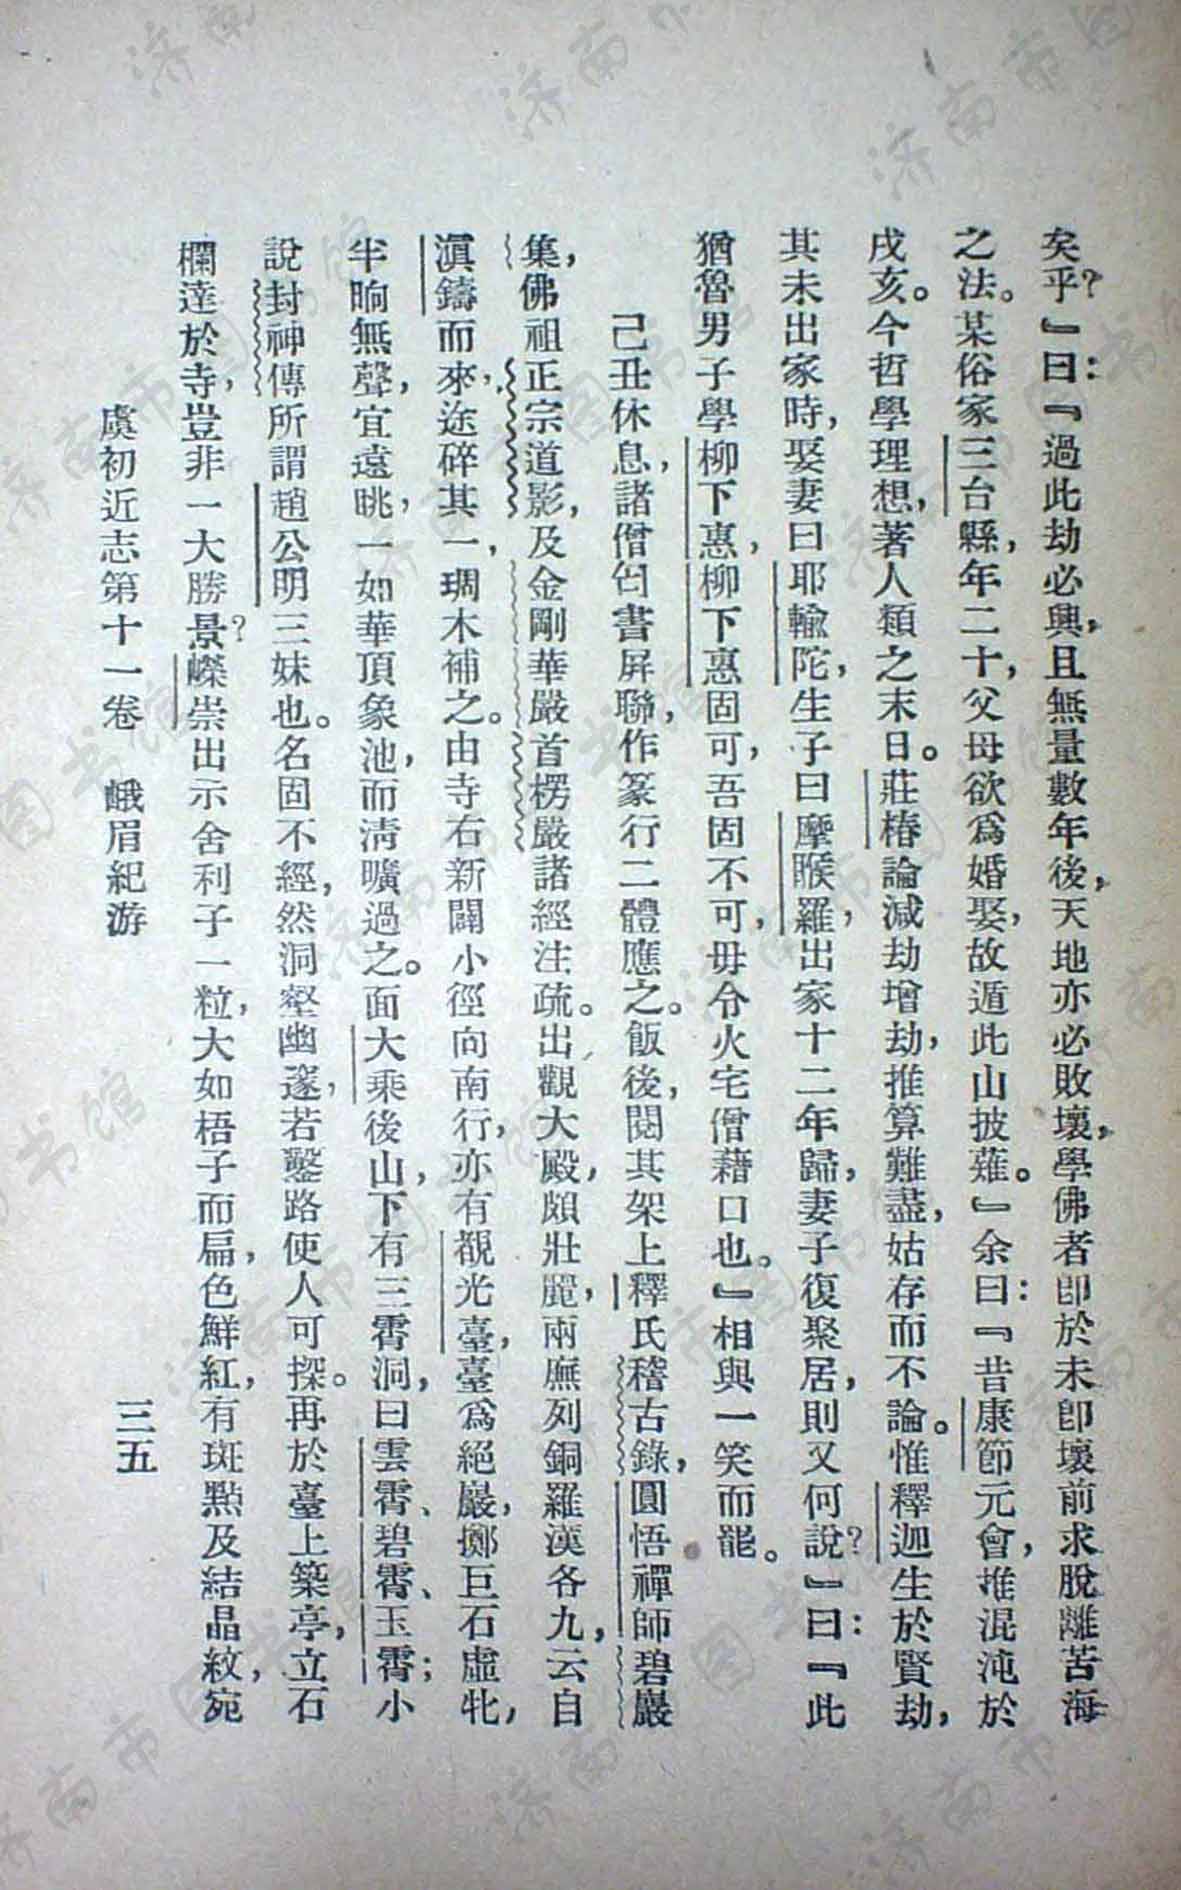 矣乎？』曰：『過此劫必興，且無量數年後，天地亦必敗壞，學佛者卽於未卽壞前求脫離苦海
之法。某俗家三台縣，年二十，父母欲爲婚娶，故遁此山披薙。』余曰：『昔康節元會，推混沌於
戌亥。今哲學理想，著人類之末日。莊椿論減劫增劫，推算難盡，姑存而不論。惟釋迦生於賢劫，
其未出家時，娶妻曰耶輸陀，生子曰摩睺羅，出家十二年歸，妻子復聚居，則又何說？』曰：『此
猶魯男子學柳下惠，柳下惠固可，吾固不可，毋令火宅僧藉口也。』相與一笑而罷。
己丑休息，諸僧匄書屛聯，作篆行二體應之。飯後，閱其架上釋氏稽古錄，圓悟禪師碧巖
集，佛祖正宗道影，及金剛華嚴首楞嚴諸經注疏。出觀大殿，頗壯麗，兩廡列銅羅漢各九，云自
滇鑄而來，途碎其一，琱木補之。由寺右新闢小徑向南行，亦有覩光臺，臺爲絕巖，擲巨石虛牝，
半晌無聲，宜遠眺，一如華頂象池，而淸曠過之。面大乘後山，下有三霄洞，曰雲霄、碧霄、玉霄；小
說封神傳所謂趙公明三妹也。名固不經，然洞壑幽邃，若鑿路使人可探。再於臺上築亭，立石
欄達於寺，豈非一大勝景？嶸崇出示舍利子一粒，大如梧子而扁，色鮮紅，有斑點及結晶紋，宛
虞初近志第十一卷　峨眉紀游　三五
濟南市图书馆